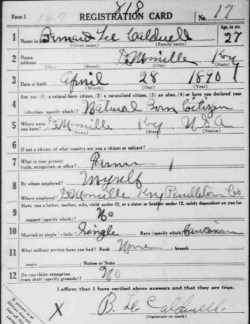 Form 1 REGISTRATION CARD No. 17
1 Name in full Lee Caldwell Age, in yrs. 27
(Given name) (Family name)
2 Home address DeMossville Ky
(No.) (Street) (City) (State)
3 Date of birth April 28 1890
(Month) (Day) (Year)
4 Are you (1) a natural-born citizen, (2) a naturalized citizen, (3) an alien, (4) or have you declared your
intention (specify which)? Natural Born Citizen
5 Where were you born? DeMossville Ky U.S.A
(Town) (State) (Nation)
6 If not a citizen, of what country are you a citizen or subject?
7 What is your present trade, occupation, or office? Farmer
8 By whom employed? Myself
Where employed? DeMossville Ky Pendleton Co
9 Have you a father, mother, wife, child under 12, or a sister or brother under 12, solely dependent on you for
support (specify which)? No
10 Married or single (which)? Single Race (specify which)? Caucasian
11 What military service have you had? Rank None ; branch
years ; Nation or State
12 Do you claim exemption from draft (specify grounds)? No
I affirm that I have verified above answers and that they are true.
X B. Lee Caldwell
(Signature or mark)